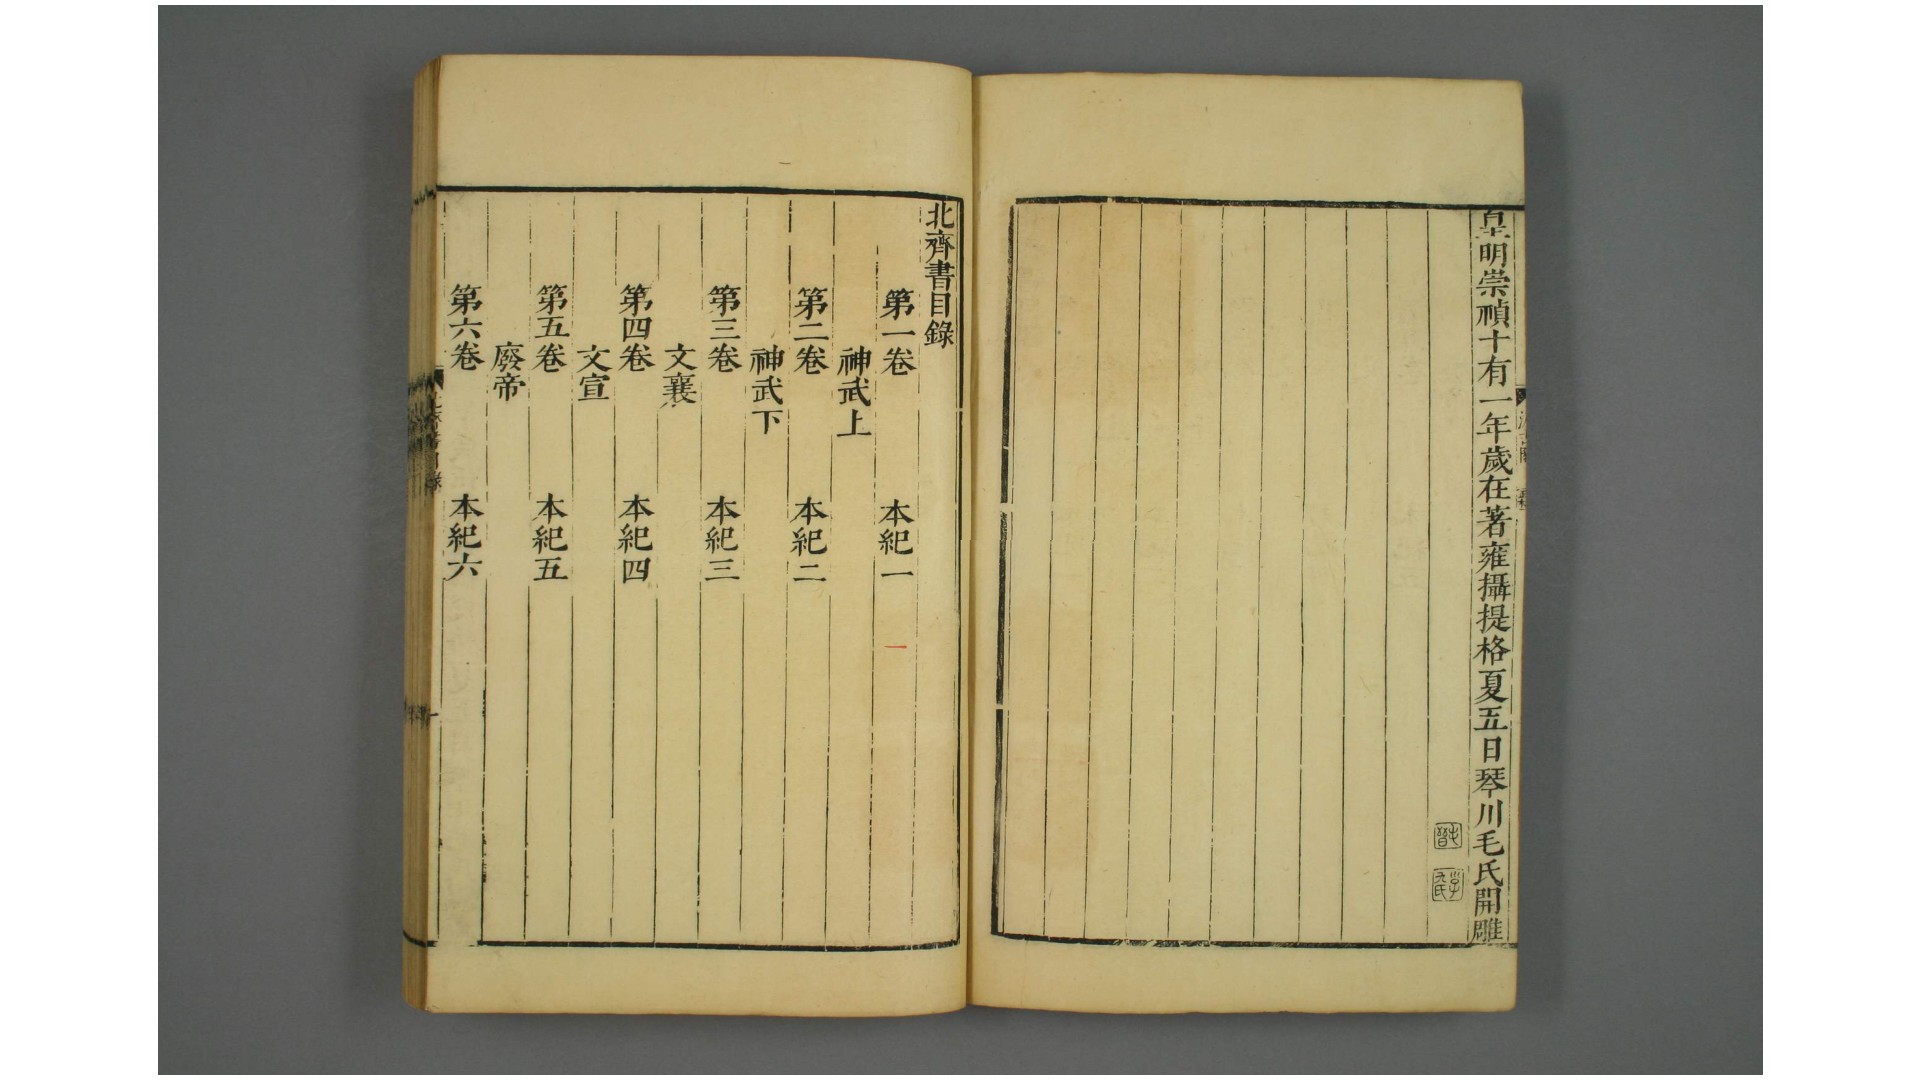 皇明崇禎十有一年歲在著雍攝提格夏五日琴川毛氏開雕
毛晉
北齊書目錄
第一卷 本紀一
神武上
第二卷 本紀二
神武下
第三卷 本紀三
文襄
第四卷 本紀四
文宣
第五卷 本紀五
廢帝
第六卷 本紀六